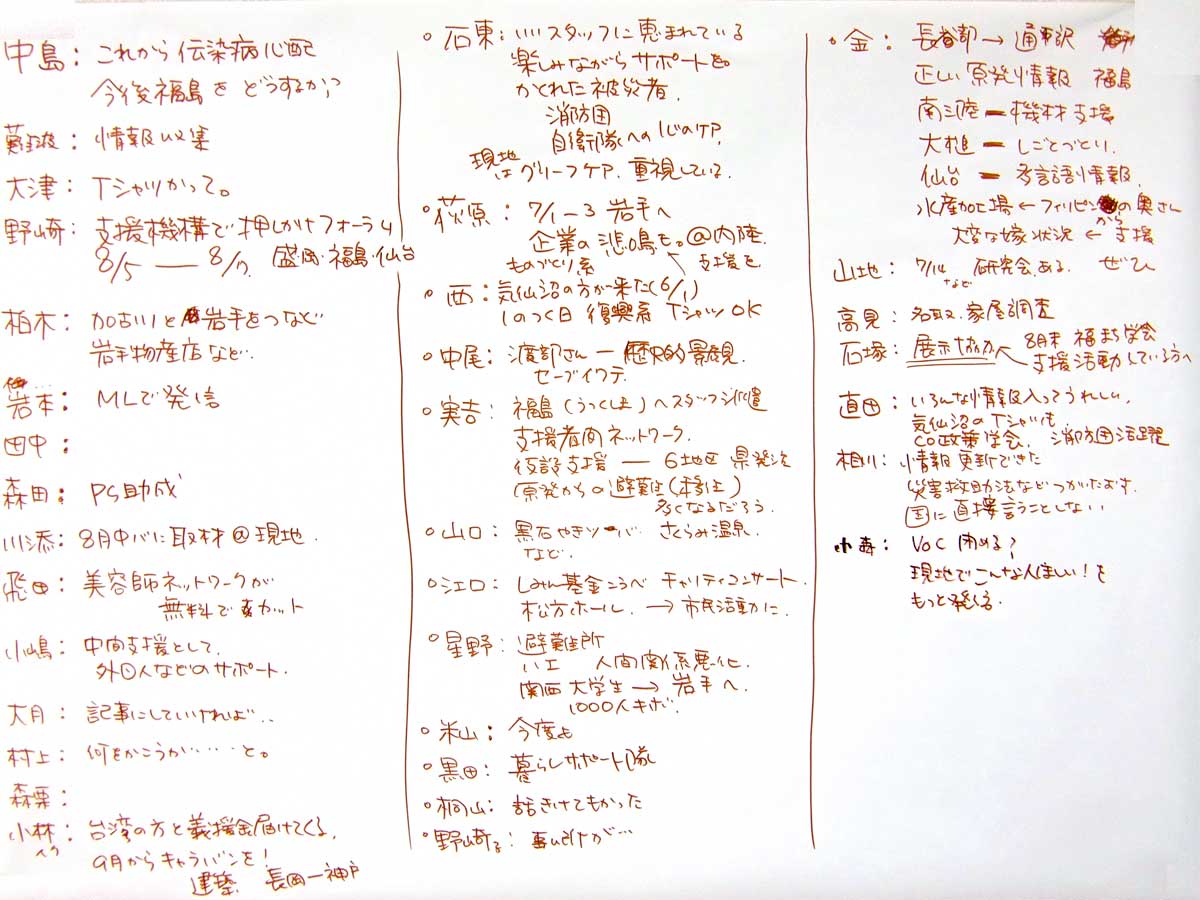 中島：これから伝染病心配
今後福島をどうするか？
難波：情報収集
大津：Tシャツかって。
野崎：支援機構で押しかけフォーラム
8/5 — 8/7. 盛岡・福島・仙台
柏木：加古川と岩手をつなぐ
岩手物産店など…
岩本：MLで発信
田中：
森田：PS助成
川添：8月中バに取材@現地.
飛田：美容師ネットワークが
無料でカット
小嶋：中間支援として.
外国人などのサポート.
大月：記事にしていければ…
村上：何をかこうか……と。
森栗：
小林：台湾の方と義援金届けてくる.
9月からキャラバンを！
建築. 長岡ー神戸
石東：いいスタッフに恵まれている
楽しみながらサポートを
かくれた被災者.
消防団
自衛隊への心のケア.
現地はグリーフケア.重視している.
荻原：7/1−3 岩手へ
企業の悲鳴も。@内陸
ものづくり系 支援を
西：気仙沼の方が来た(6/1)
1のつく日 復興系 TシャツOK
中尾：渡部さん ー 歴史的景観.
セーブイワテ.
実吉：福島(うつくしま)へスタッフ派遣
支援者間ネットワーク.
仮設支援 — 6地区 県発注
原発からの避難住(移住)
多くなるだろう.
山口：黒石やきソーバ さくらみ温泉.
など.
江口：しみん基金こうべ チャリティコンサート.
松方ホール. → 市民活動に.
星野：避難所
人間関係悪化.
関西 大学生 → 岩手へ.
1000人キボ.
米山：今度も
黒田：暮らしサポート隊
桐山：話きけてよかった
野崎：
金：長谷部→通訳
正しい原発情報 福島
南三陸 ー 機材支援
大槌 ー しごとづくり.
仙台 ー 多言語情報.
水産加工場 ← フィリピンからの奥さん
大変な嫁状況 ← 支援
山地：7/14など 研究会ある. ぜひ
高見：名取.家屋調査
石塚：展示協力 ← 8月末 福まち学会
支援活動している方へ
直田：いろんな情報入ってうれしい.
気仙沼のTシャツも.
CO政策学会. 消防団活躍
相川：情報更新できた
災害救助法などつかいたおす.
国に直接言うことしない
小森：VOC 閉める？
現地でこんな人ほしい！を
もっと発信.